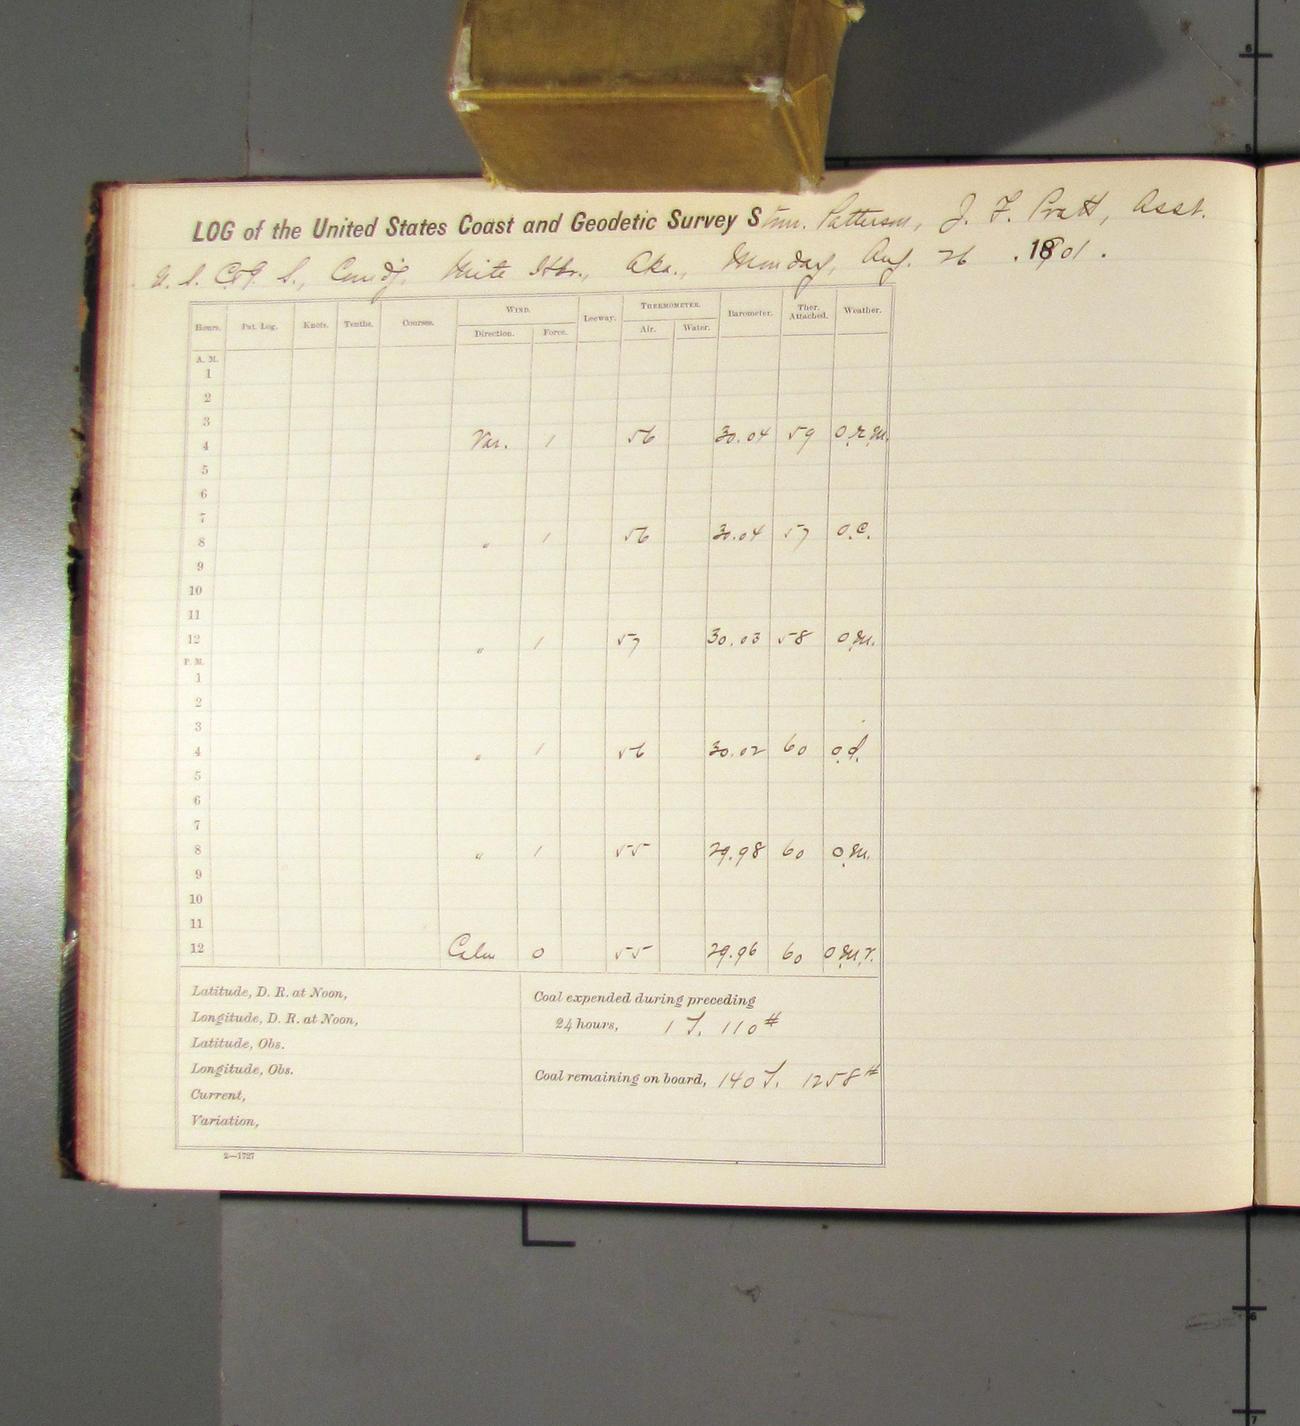 LOG of the United States Coast and Geodetic Survey Stmr. Patterson, J. F. Pratt, Asst.
U. S. C. & G. S., Comd'g, Mite Hbr., Aka., Monday, Aug. 26 . 1901 .
Hours. Pat. Log. Knots. Tenths. Courses. WIND. Leeway. THERMOMETER. Barometer. Ther. Attached. Weather.
Direction. Force. Air. Water.
A. M.
1
2
3
4 Var. 1 56 30.04 59 o.r.m.
5
6
7
8 " 1 56 30.04 57 o.c.
9
10
11
12 " 1 57 30.03 58 o.m.
P. M.
1
2
3
4 " 1 56 30.02 60 o.d.
5
6
7
8 " 1 55 29.98 60 o.m.
9
10
11
12 Calm 0 55 29.96 60 o.m.r.
Latitude, D. R. at Noon,
Longitude, D. R. at Noon,
Latitude, Obs.
Longitude, Obs.
Current,
Variation,
Coal expended during preceding
24 hours, 1 T. 110#
Coal remaining on board, 140 T. 1258#
2—1727
6
5
6
7